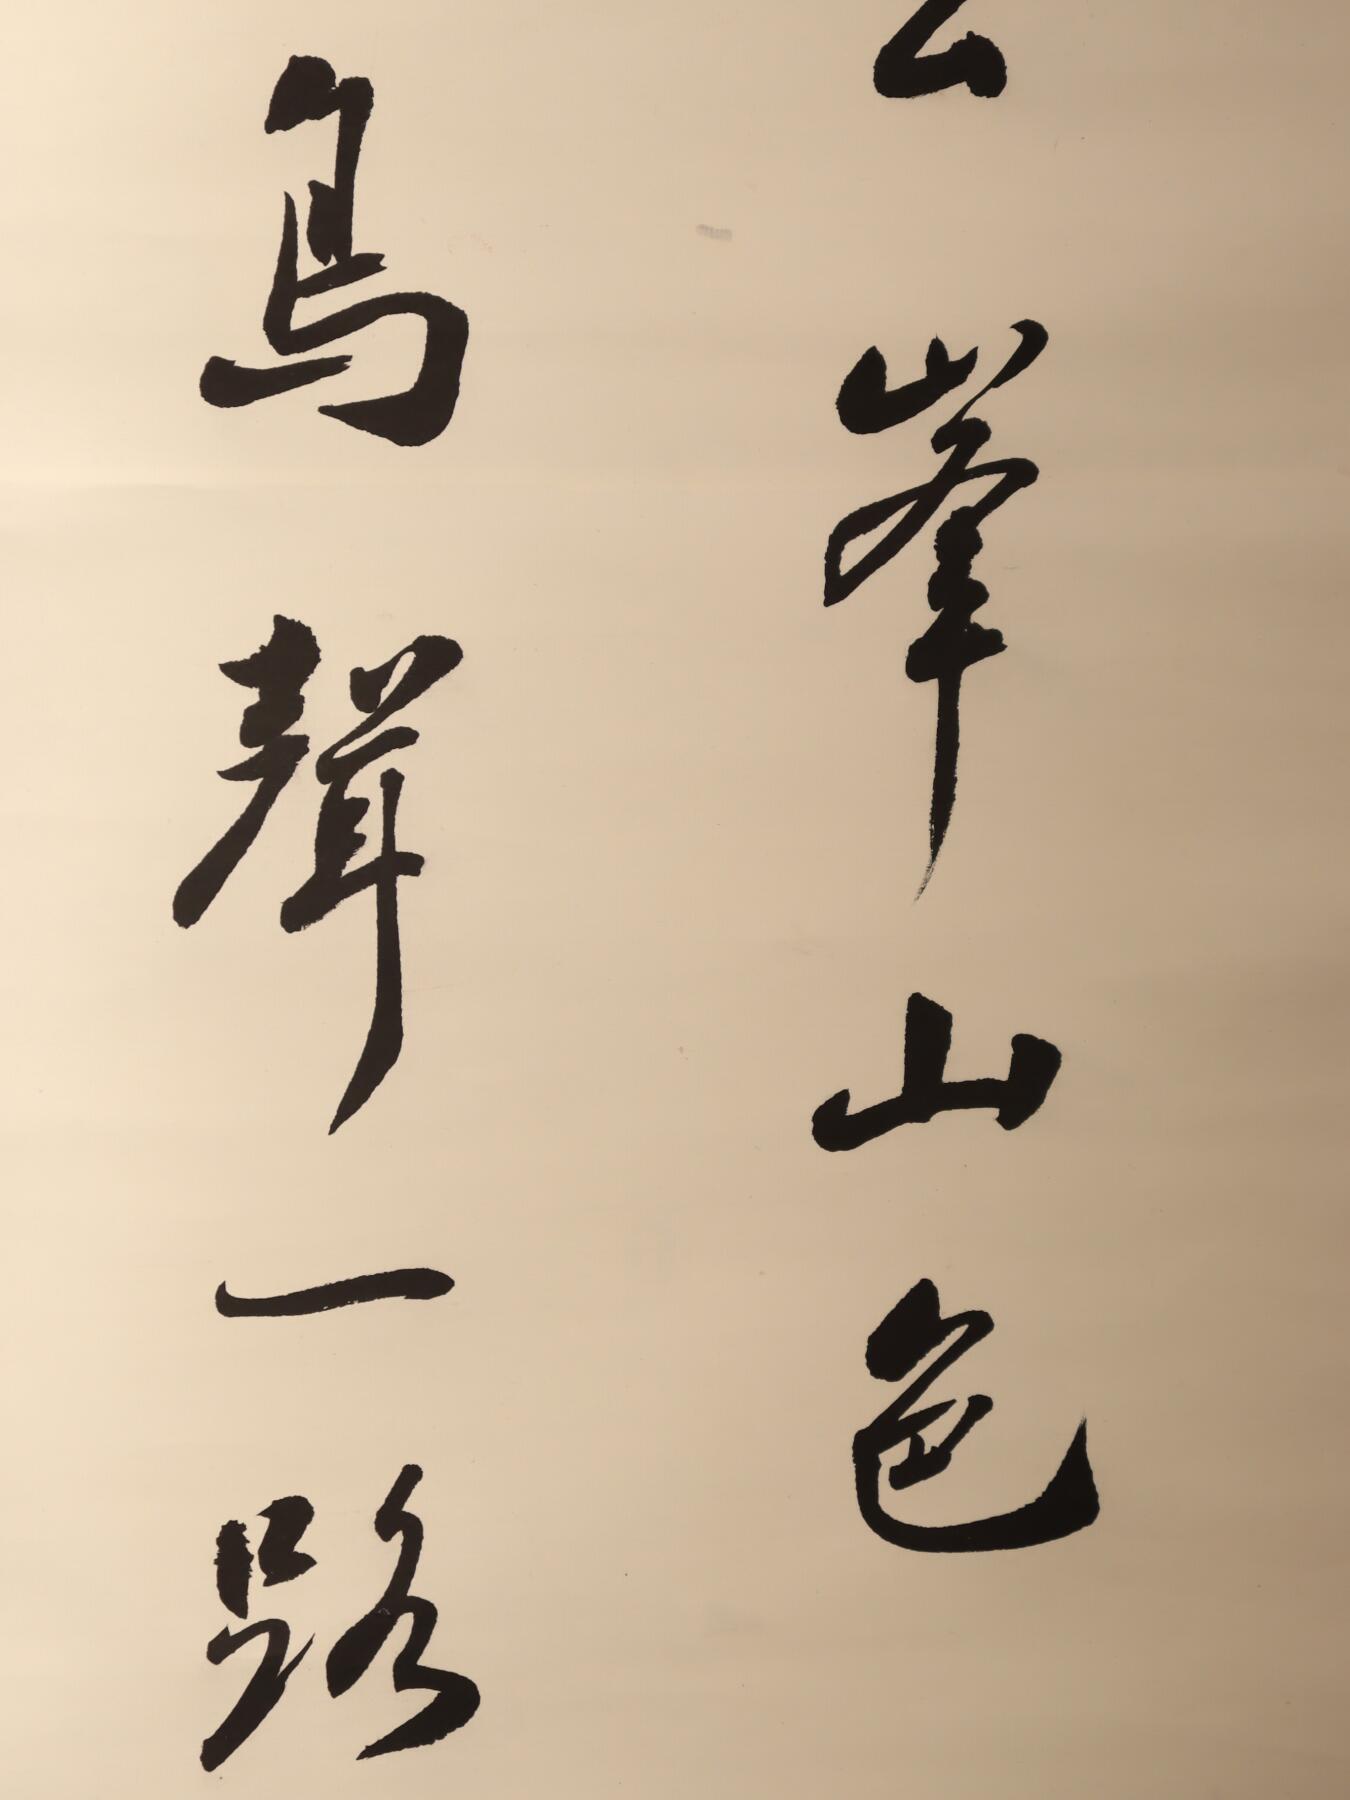 峯山色
鳥聲一路